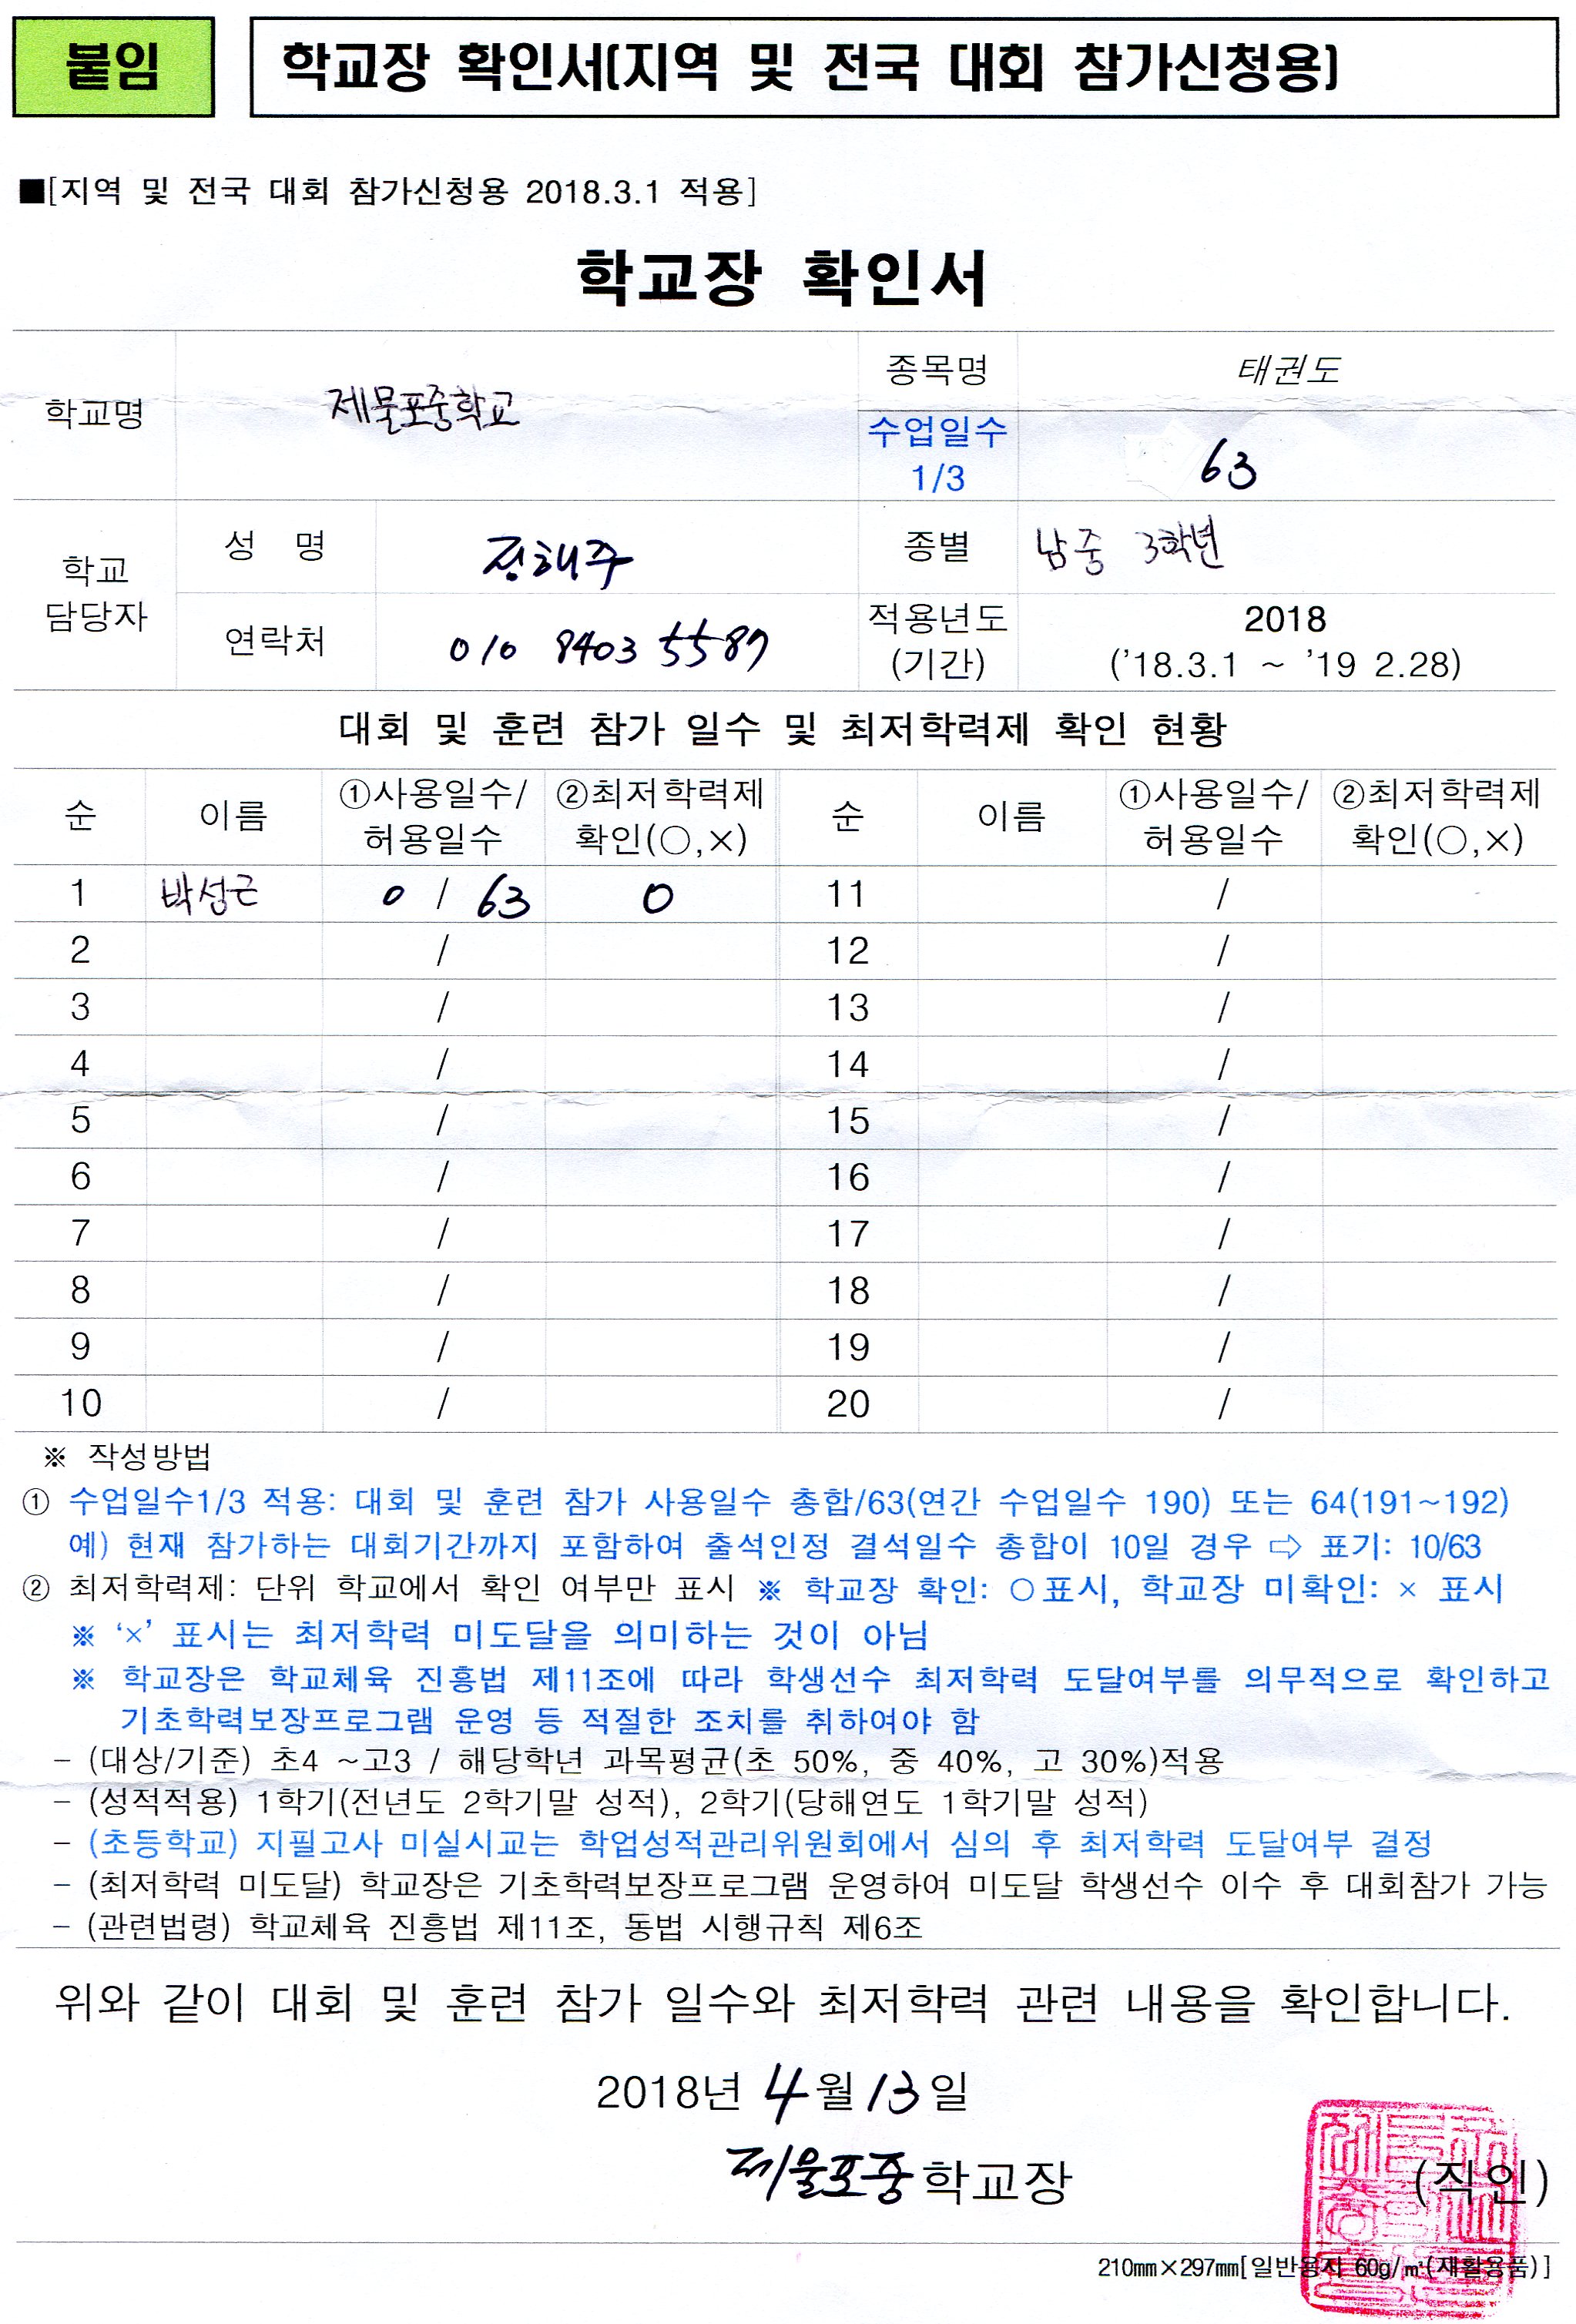 붙임
학교장 확인서(지역 및 전국 대회 참가신청용)
■[지역 및 전국 대회 참가신청용 2018.3.1 적용]
학교장 확인서
학교명 제물포중학교 종목명 태권도
수업일수 1/3 63
학교 담당자 성 명 정해주 종별 남중 3학년
연락처 010 8403 5587 적용년도 (기간) 2018 ('18.3.1 ~ '19 2.28)
대회 및 훈련 참가 일수 및 최저학력제 확인 현황
순 이름 ①사용일수/허용일수 ②최저학력제 확인(○,×) 순 이름 ①사용일수/허용일수 ②최저학력제 확인(○,×)
1 박성근 0 / 63 0 11 /
2 / 12 /
3 / 13 /
4 / 14 /
5 / 15 /
6 / 16 /
7 / 17 /
8 / 18 /
9 / 19 /
10 / 20 /
※ 작성방법
① 수업일수1/3 적용: 대회 및 훈련 참가 사용일수 총합/63(연간 수업일수 190) 또는 64(191~192)
예) 현재 참가하는 대회기간까지 포함하여 출석인정 결석일수 총합이 10일 경우 ⇨ 표기: 10/63
② 최저학력제: 단위 학교에서 확인 여부만 표시 ※ 학교장 확인: ○표시, 학교장 미확인: × 표시
※ '×' 표시는 최저학력 미도달을 의미하는 것이 아님
※ 학교장은 학교체육 진흥법 제11조에 따라 학생선수 최저학력 도달여부를 의무적으로 확인하고
기초학력보장프로그램 운영 등 적절한 조치를 취하여야 함
- (대상/기준) 초4 ~고3 / 해당학년 과목평균(초 50%, 중 40%, 고 30%)적용
- (성적적용) 1학기(전년도 2학기말 성적), 2학기(당해연도 1학기말 성적)
- (초등학교) 지필고사 미실시교는 학업성적관리위원회에서 심의 후 최저학력 도달여부 결정
- (최저학력 미도달) 학교장은 기초학력보장프로그램 운영하여 미도달 학생선수 이수 후 대회참가 가능
- (관련법령) 학교체육 진흥법 제11조, 동법 시행규칙 제6조
위와 같이 대회 및 훈련 참가 일수와 최저학력 관련 내용을 확인합니다.
2018년 4월 13일
제물포중학교장 (직인)
210㎜×297㎜[일반용지 60g/㎡(재활용품)]